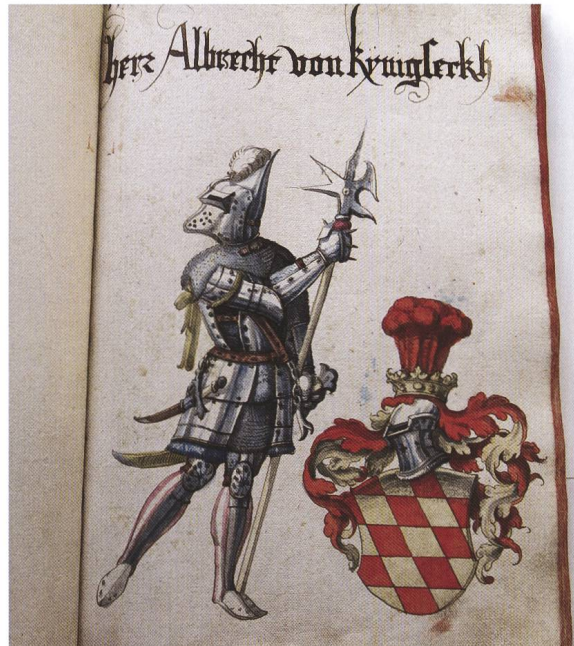 herz Albrecht von kynigserkh